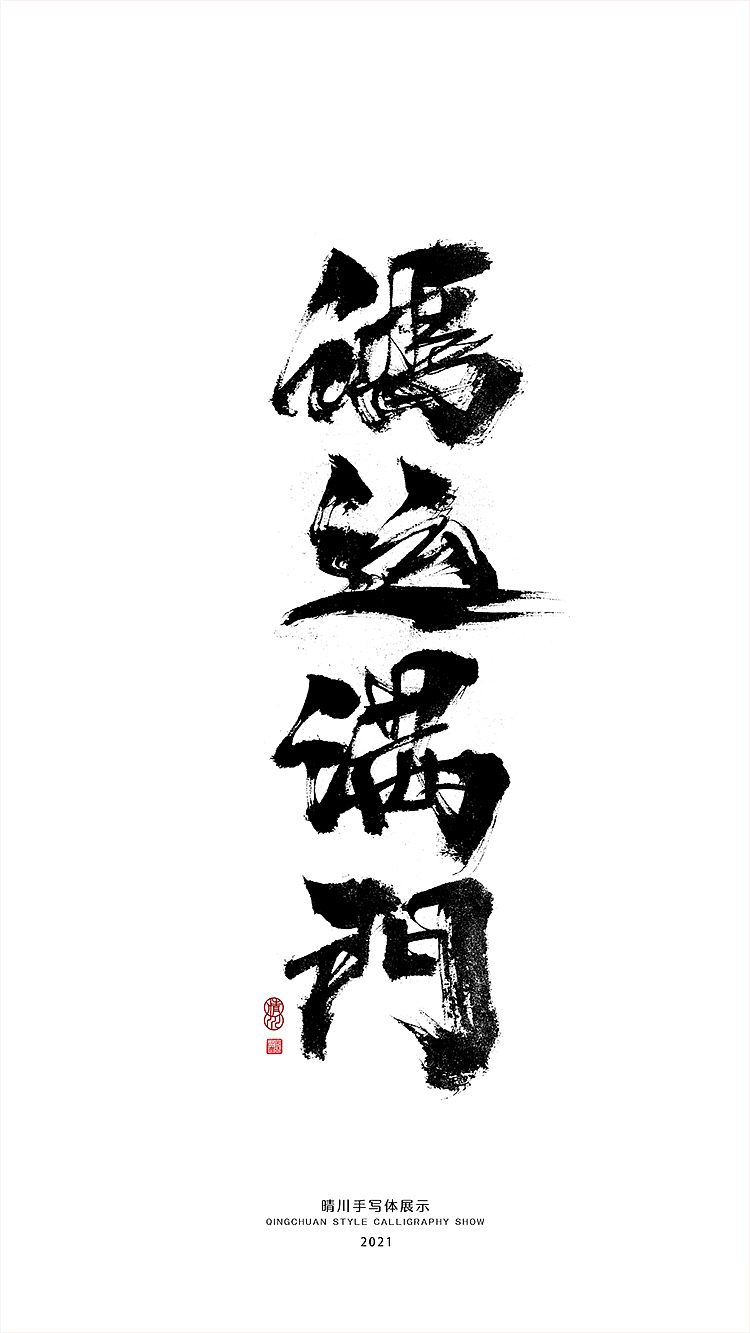 鴻
运
满
門
晴川
晴川手写体展示
QINGCHUAN STYLE CALLIGRAPHY SHOW
2021